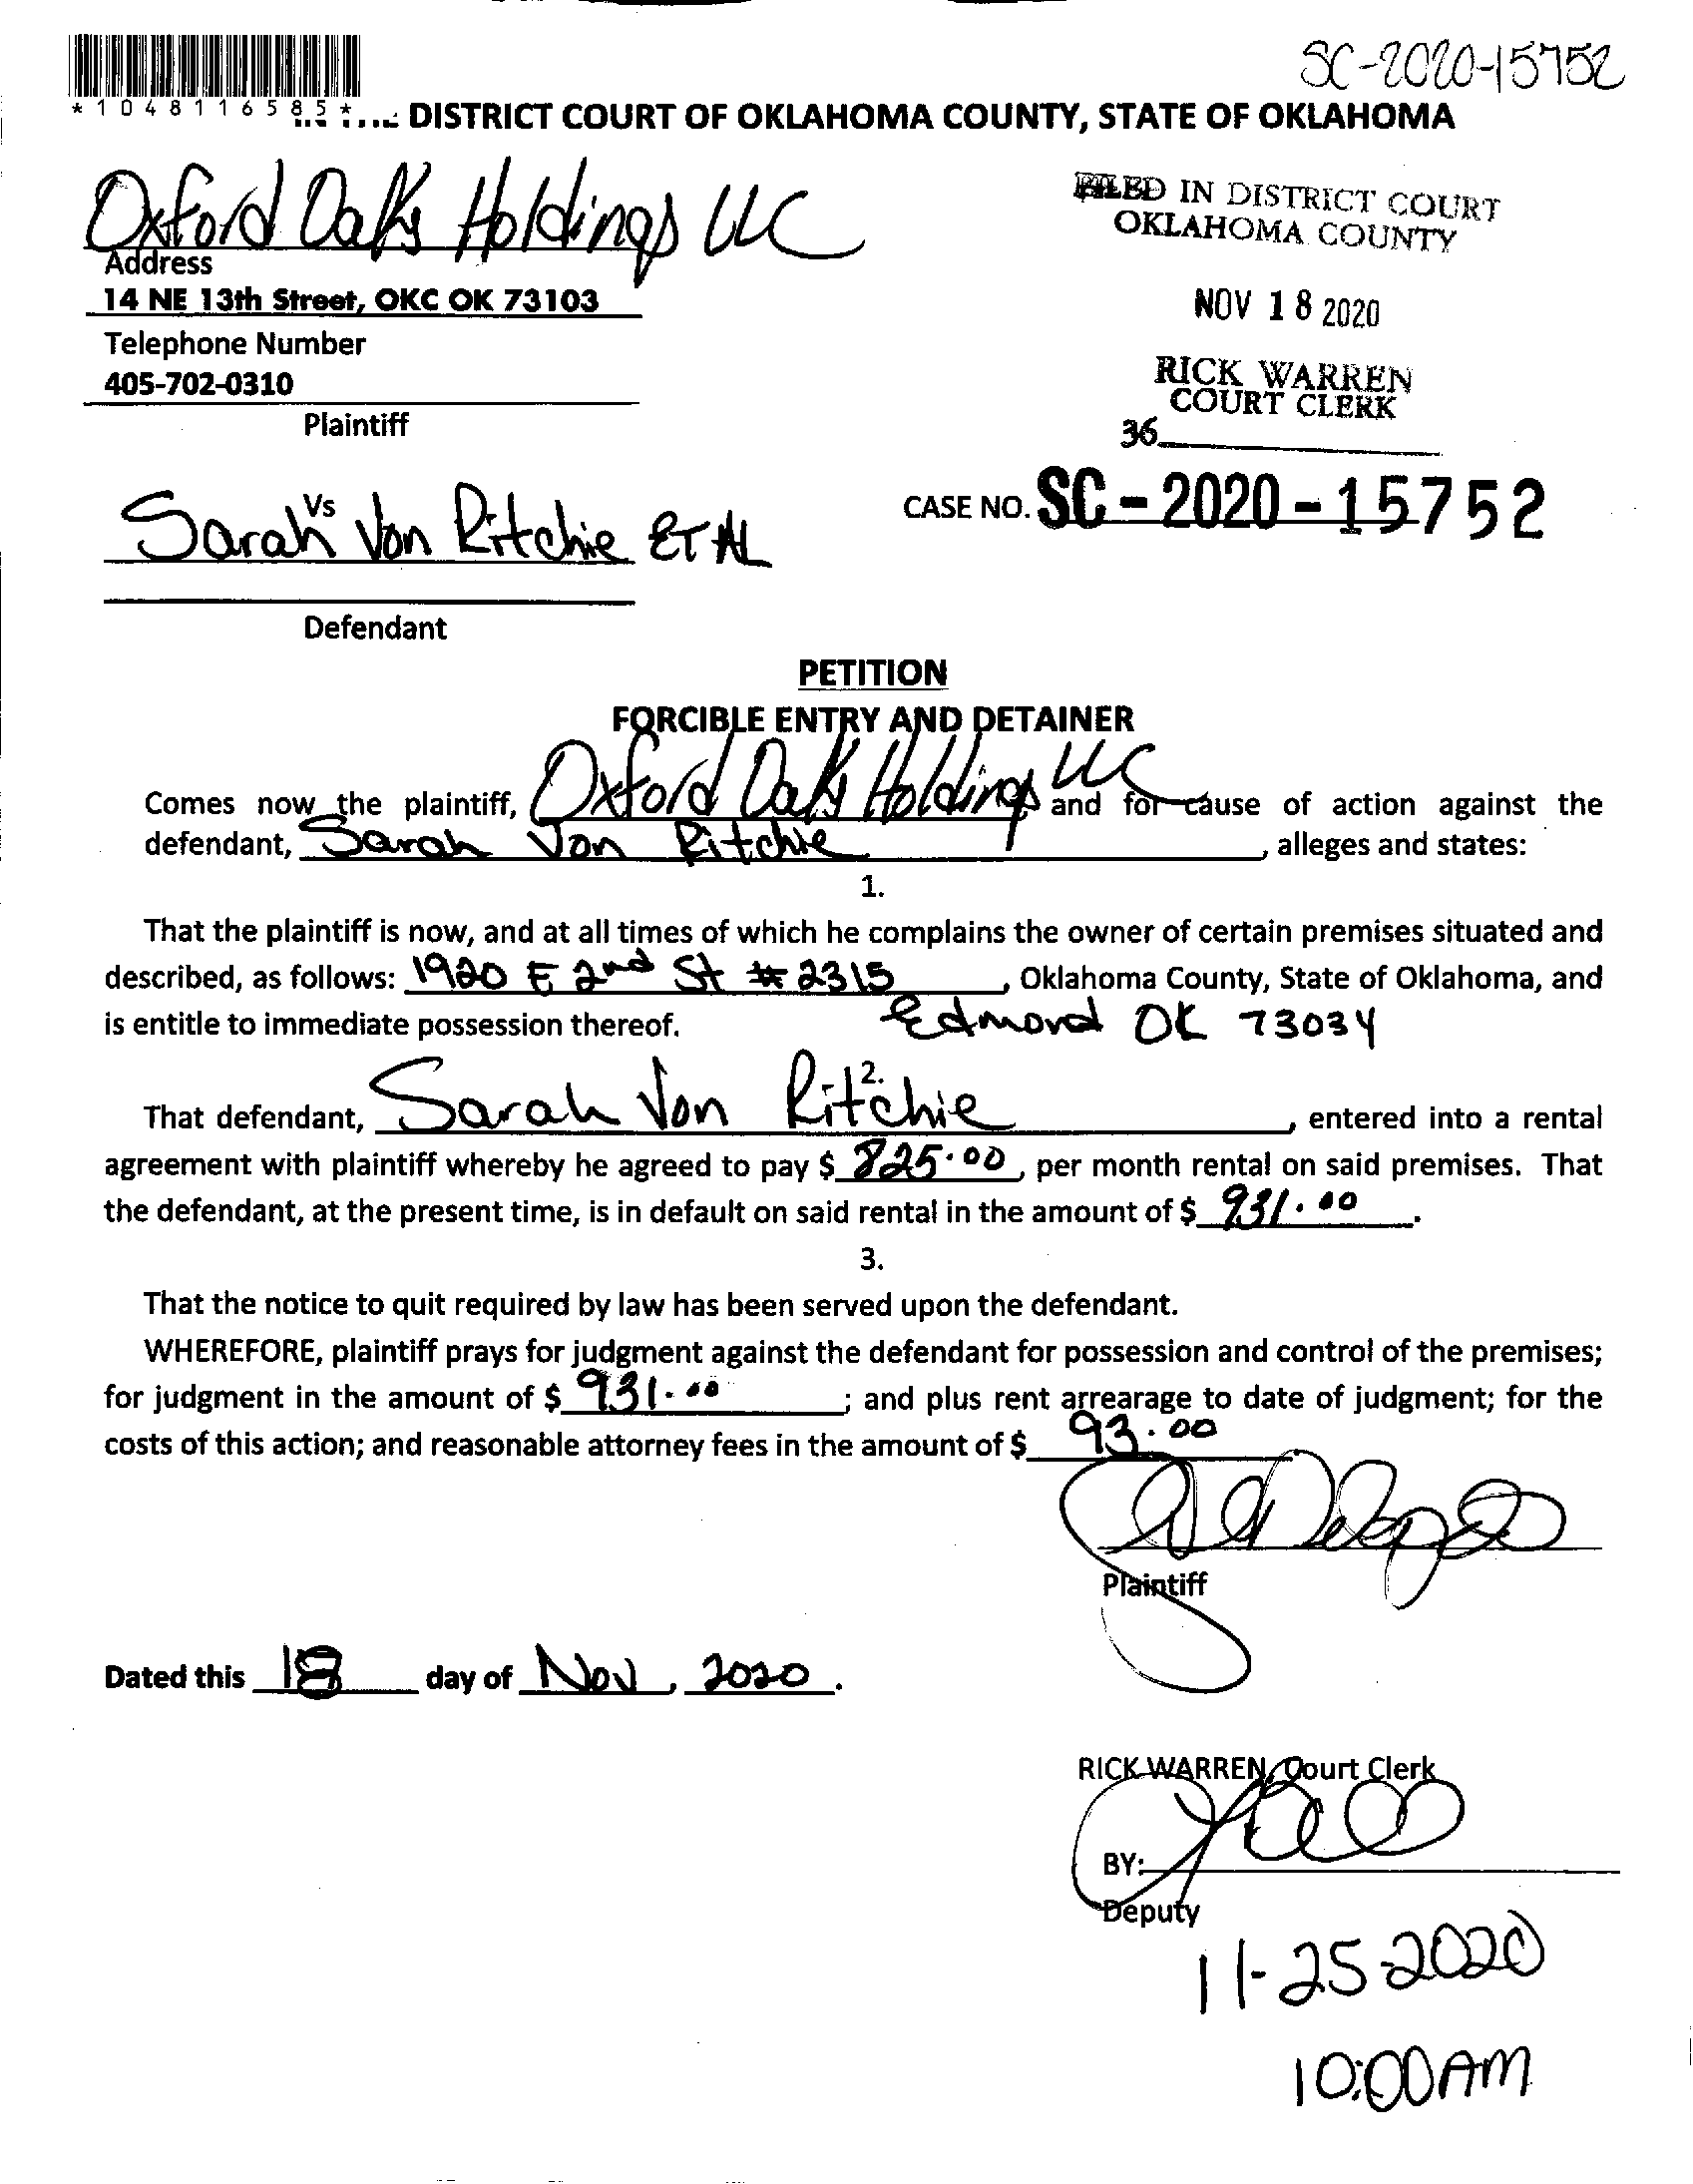 SC-2020-15752
*1048116585*
DISTRICT COURT OF OKLAHOMA COUNTY, STATE OF OKLAHOMA
Oxford Oaks Holdings LLC
Address
14 NE 13th Street, OKC OK 73103
Telephone Number
405-702-0310
Plaintiff
FILED IN DISTRICT COURT
OKLAHOMA COUNTY
NOV 18 2020
RICK WARREN
COURT CLERK
36
Vs
Sarah Von Ritchie ET AL
CASE NO. SC-2020-15752
Defendant
PETITION
FORCIBLE ENTRY AND DETAINER
Comes now the plaintiff, Oxford Oaks Holdings LLC and for cause of action against the
defendant, Sarah Von Ritchie, alleges and states:
1.
That the plaintiff is now, and at all times of which he complains the owner of certain premises situated and
described, as follows: 1920 E 2nd St # 2315, Oklahoma County, State of Oklahoma, and
is entitle to immediate possession thereof. Edmond OK 73034
2.
That defendant, Sarah Von Ritchie, entered into a rental
agreement with plaintiff whereby he agreed to pay $ 825.00, per month rental on said premises. That
the defendant, at the present time, is in default on said rental in the amount of $ 931.00.
3.
That the notice to quit required by law has been served upon the defendant.
WHEREFORE, plaintiff prays for judgment against the defendant for possession and control of the premises;
for judgment in the amount of $ 931.00; and plus rent arrearage to date of judgment; for the
costs of this action; and reasonable attorney fees in the amount of $ 93.00
Plaintiff
Dated this 18 day of Nov, 2020.
RICK WARREN, Court Clerk
BY:
Deputy
11-25-2020
10:00AM